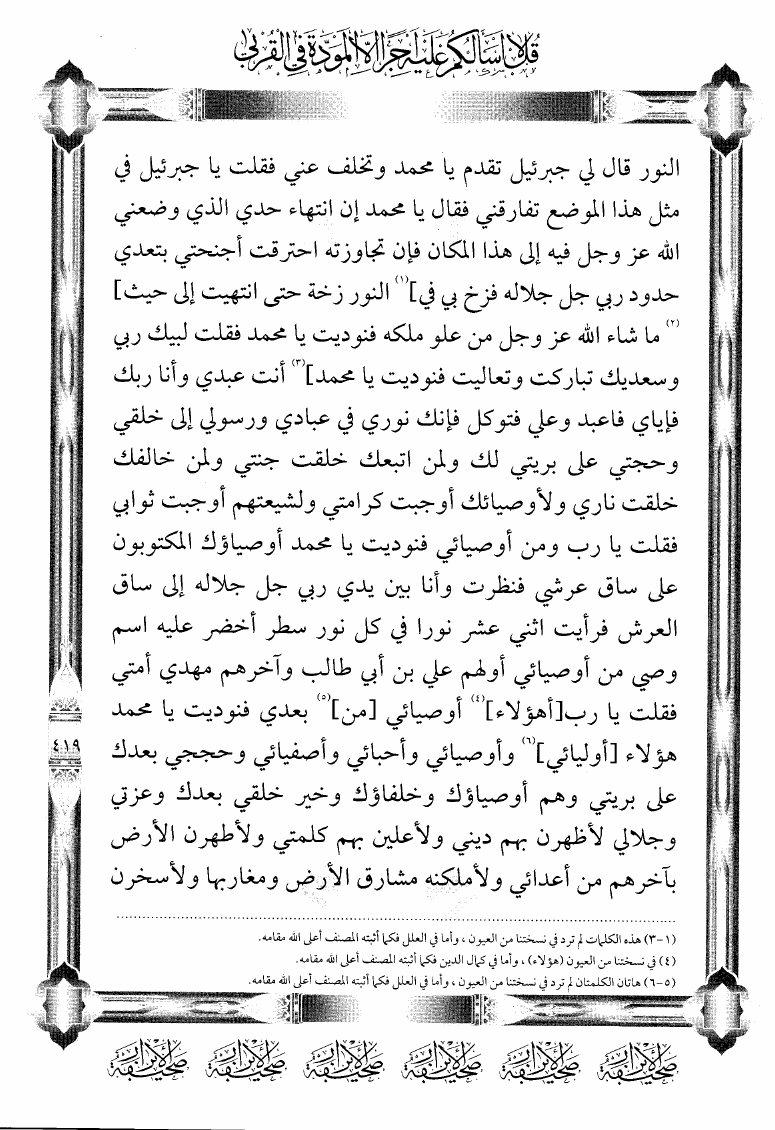 قل لا أسألكم عليه أجرا إلا المودة في القربى
النور قال لي جبرئيل تقدم يا محمد وتخلف عني فقلت يا جبرئيل في
مثل هذا الموضع تفارقني فقال يا محمد إن انتهاء حدي الذي وضعني
الله عز وجل فيه إلى هذا المكان فإن تجاوزته احترقت أجنحتي بتعدي
حدود ربي جل جلاله فزخ بي في](١) النور زخة حتى انتهيت إلى حيث]
(٢) ما شاء الله عز وجل من علو ملكه فنوديت يا محمد فقلت لبيك ربي
وسعديك تباركت وتعاليت فنوديت يا محمد](٣) أنت عبدي وأنا ربك
فإياي فاعبد وعلي فتوكل فإنك نوري في عبادي ورسولي إلى خلقي
وحجتي على بريتي لك ولمن اتبعك خلقت جنتي ولمن خالفك
خلقت ناري ولأوصيائك أوجبت كرامتي ولشيعتهم أوجبت ثوابي
فقلت يا رب ومن أوصيائي فنوديت يا محمد أوصياؤك المكتوبون
على ساق عرشي فنظرت وأنا بين يدي ربي جل جلاله إلى ساق
العرش فرأيت اثني عشر نورا في كل نور سطر أخضر عليه اسم
وصي من أوصيائي أولهم علي بن أبي طالب وآخرهم مهدي أمتي
فقلت يا رب[أهؤلاء](٤) أوصيائي [من](٥) بعدي فنوديت يا محمد
هؤلاء [أوليائي](٦) وأوصيائي وأحبائي وأصفيائي وحججي بعدك
على بريتي وهم أوصياؤك وخلفاؤك وخير خلقي بعدك وعزتي
وجلالي لأظهرن بهم ديني ولأعلين بهم كلمتي ولأطهرن الأرض
بآخرهم من أعدائي ولأملكنه مشارق الأرض ومغاربها ولأسخرن
٤١٩
(١-٣) هذه الكلمات لم ترد في نسختنا من العيون ، وأما في العلل فكما أثبته المصنف أعلى الله مقامه.
(٤) في نسختنا من العيون (هؤلاء) ، وأما في كمال الدين فكما أثبته المصنف أعلى الله مقامه.
(٥-٦) هاتان الكلمتان لم ترد في نسختنا من العيون ، وأما في العلل فكما أثبته المصنف أعلى الله مقامه.
صحيفة الأبرار صحيفة الأبرار صحيفة الأبرار صحيفة الأبرار صحيفة الأبرار صحيفة الأبرار